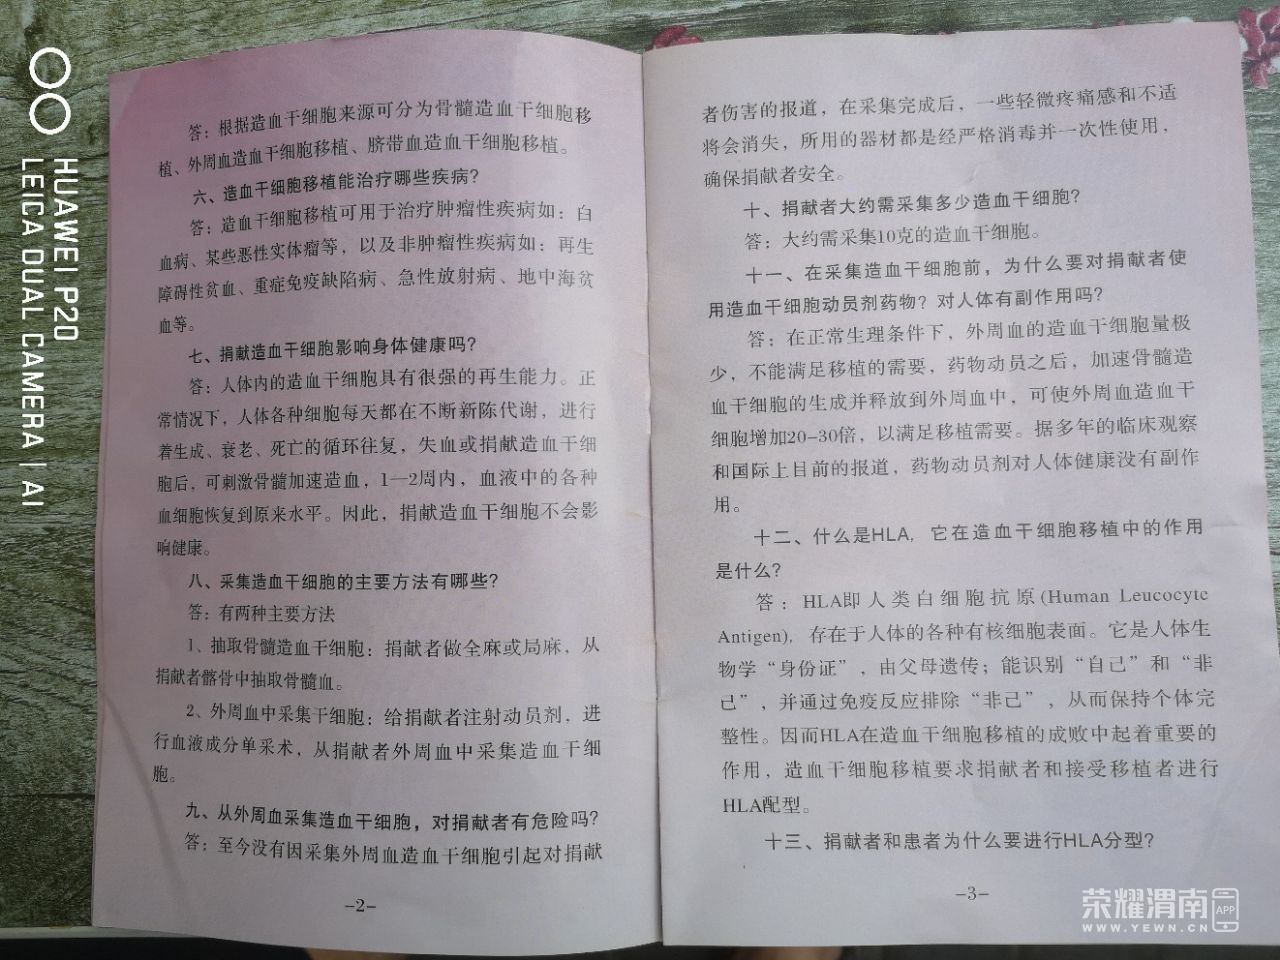 答：根据造血干细胞来源可分为骨髓造血干细胞移
植、外周血造血干细胞移植、脐带血造血干细胞移植。
六、造血干细胞移植能治疗哪些疾病？
答：造血干细胞移植可用于治疗肿瘤性疾病如：白
血病、某些恶性实体瘤等，以及非肿瘤性疾病如：再生
障碍性贫血、重症免疫缺陷病、急性放射病、地中海贫
血等。
七、捐献造血干细胞影响身体健康吗？
答：人体内的造血干细胞具有很强的再生能力。正
常情况下，人体各种细胞每天都在不断新陈代谢，进行
着生成、衰老、死亡的循环往复，失血或捐献造血干细
胞后，可刺激骨髓加速造血，1—2周内，血液中的各种
血细胞恢复到原来水平。因此，捐献造血干细胞不会影
响健康。
八、采集造血干细胞的主要方法有哪些？
答：有两种主要方法
1、抽取骨髓造血干细胞：捐献者做全麻或局麻，从
捐献者髂骨中抽取骨髓血。
2、外周血中采集干细胞：给捐献者注射动员剂，进
行血液成分单采术，从捐献者外周血中采集造血干细
胞。
九、从外周血采集造血干细胞，对捐献者有危险吗？
答：至今没有因采集外周血造血干细胞引起对捐献
–2–
者伤害的报道，在采集完成后，一些轻微疼痛感和不适
将会消失，所用的器材都是经严格消毒并一次性使用，
确保捐献者安全。
十、捐献者大约需采集多少造血干细胞？
答：大约需采集10克的造血干细胞。
十一、在采集造血干细胞前，为什么要对捐献者使
用造血干细胞动员剂药物？对人体有副作用吗？
答：在正常生理条件下，外周血的造血干细胞量极
少，不能满足移植的需要，药物动员之后，加速骨髓造
血干细胞的生成并释放到外周血中，可使外周血造血干
细胞增加20–30倍，以满足移植需要。据多年的临床观察
和国际上目前的报道，药物动员剂对人体健康没有副作
用。
十二、什么是HLA，它在造血干细胞移植中的作用
是什么？
答：HLA即人类白细胞抗原(Human Leucocyte
Antigen)，存在于人体的各种有核细胞表面。它是人体生
物学“身份证”，由父母遗传；能识别“自己”和“非
己”，并通过免疫反应排除“非己”，从而保持个体完
整性。因而HLA在造血干细胞移植的成败中起着重要的
作用，造血干细胞移植要求捐献者和接受移植者进行
HLA配型。
十三、捐献者和患者为什么要进行HLA分型？
–3–
HUAWEI P20
LEICA DUAL CAMERA | AI
荣耀渭南 APP
WWW.YEWN.CN